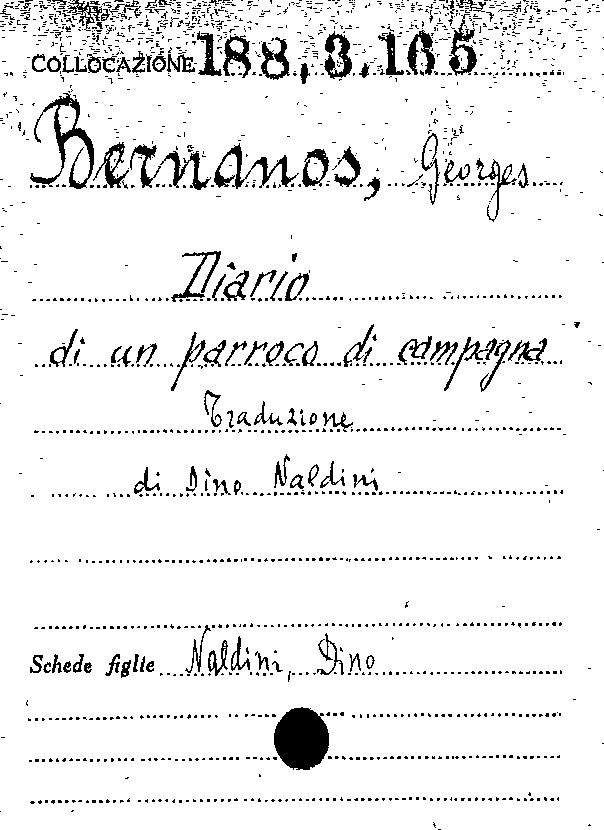 COLLOCAZIONE 188,3.165
Bernanos, Georges
Diario
di un parroco di campagna
Traduzione
di Dino Naldini
Schede figlie Naldini, Dino